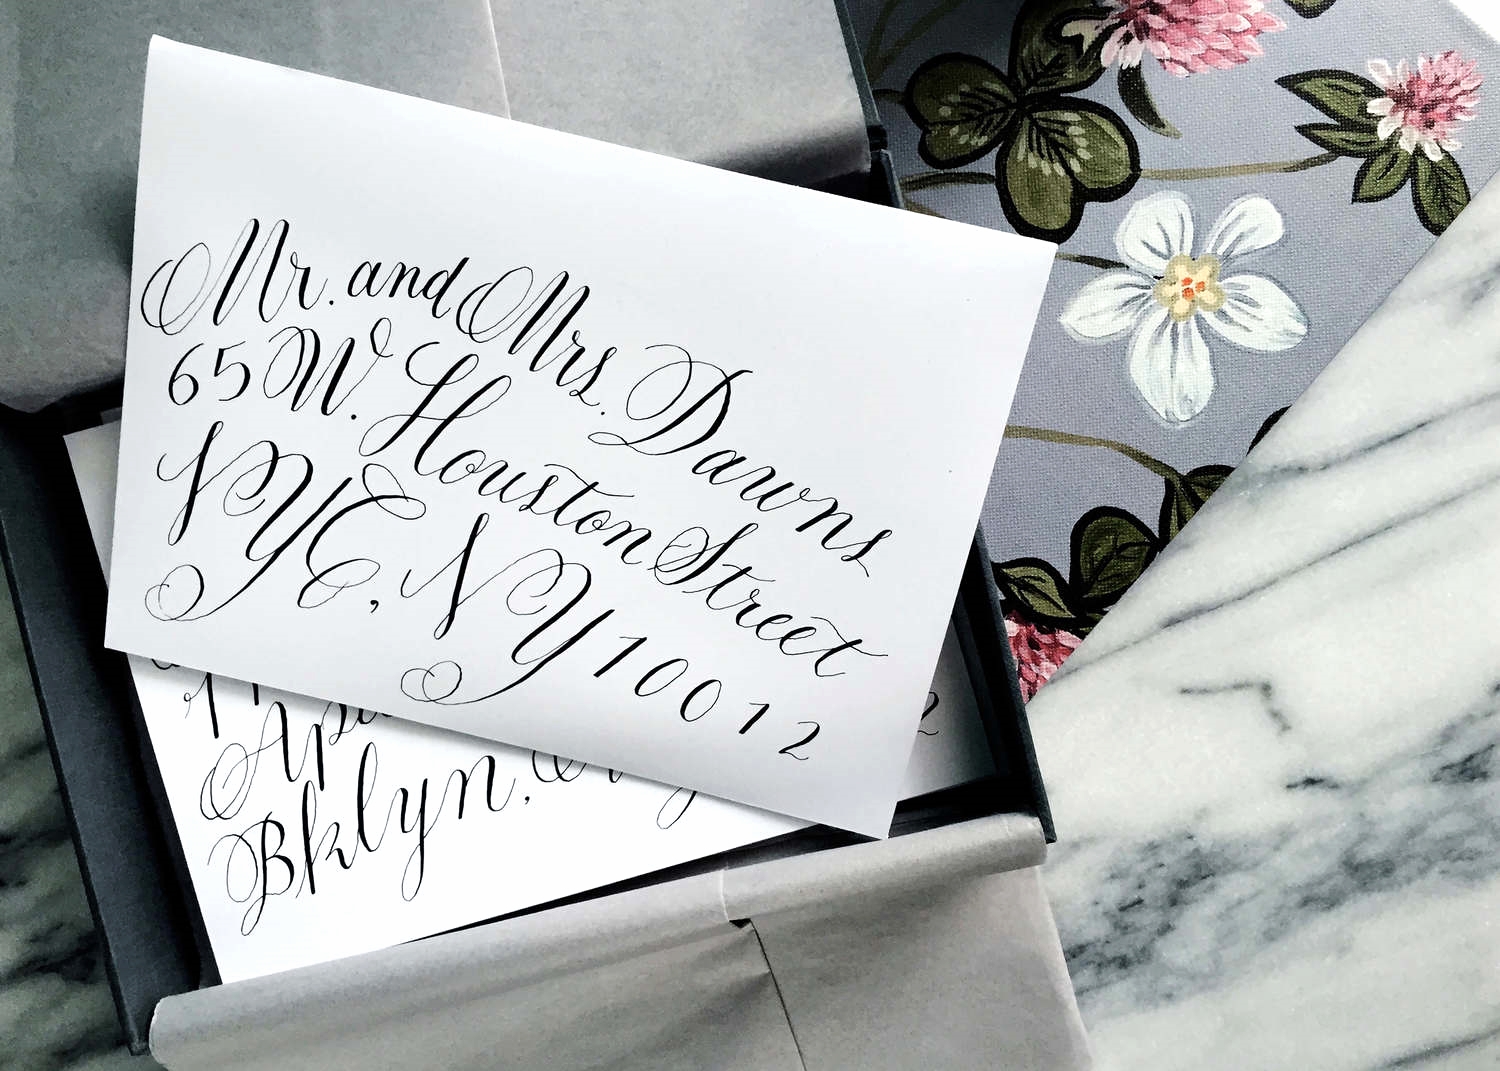 Mr. and Mrs. Dawns
65 W. Houston Street
NYC, NY 10012
Bklyn,